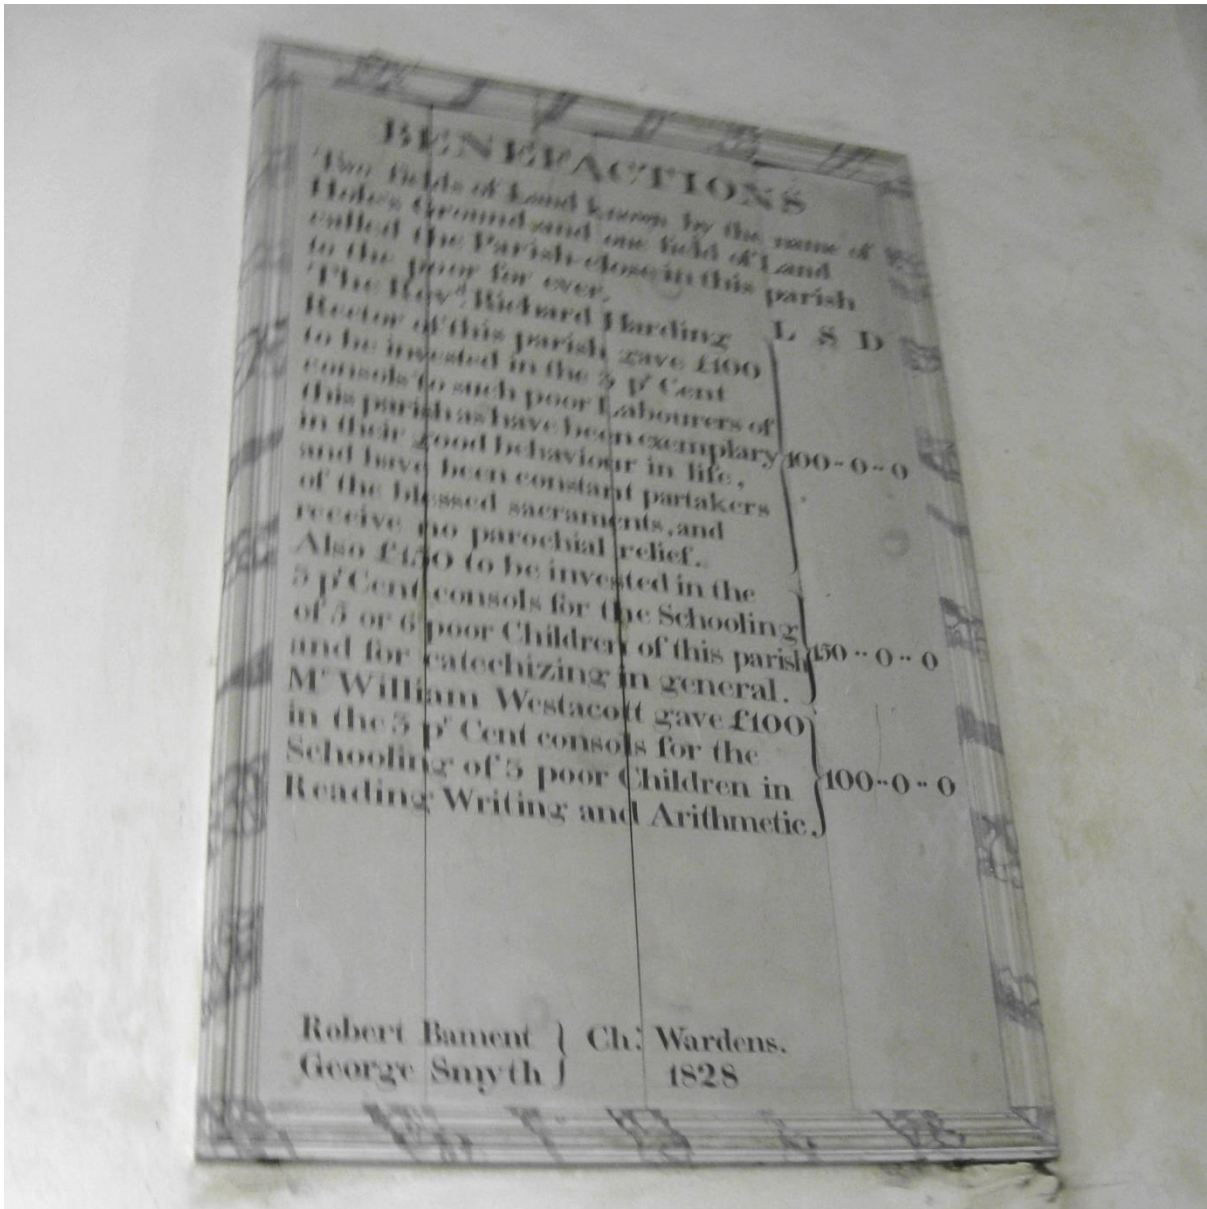 BENEFACTIONS
Two fields of Land known by the name of
Hole's Ground and one field of Land
called the Parish close in this parish
to the poor for ever.
L S D
The Revd. Richard Harding
Rector of this parish gave £100
to be invested in the 3 pr Cent
consols to such poor Labourers of
this parish as have been exemplary
in their good behaviour in life,
100-0-0
and have been constant partakers
of the blessed sacraments, and
receive no parochial relief.
Also £150 to be invested in the
3 pr Cent consols for the Schooling
of 5 or 6 poor Children of this parish
150--0--0
and for catechizing in general.
Mr William Westacott gave £100
in the 3 pr Cent consols for the
Schooling of 5 poor Children in
100--0--0
Reading Writing and Arithmetic.
Robert Bament } Ch: Wardens.
George Smyth } 1828